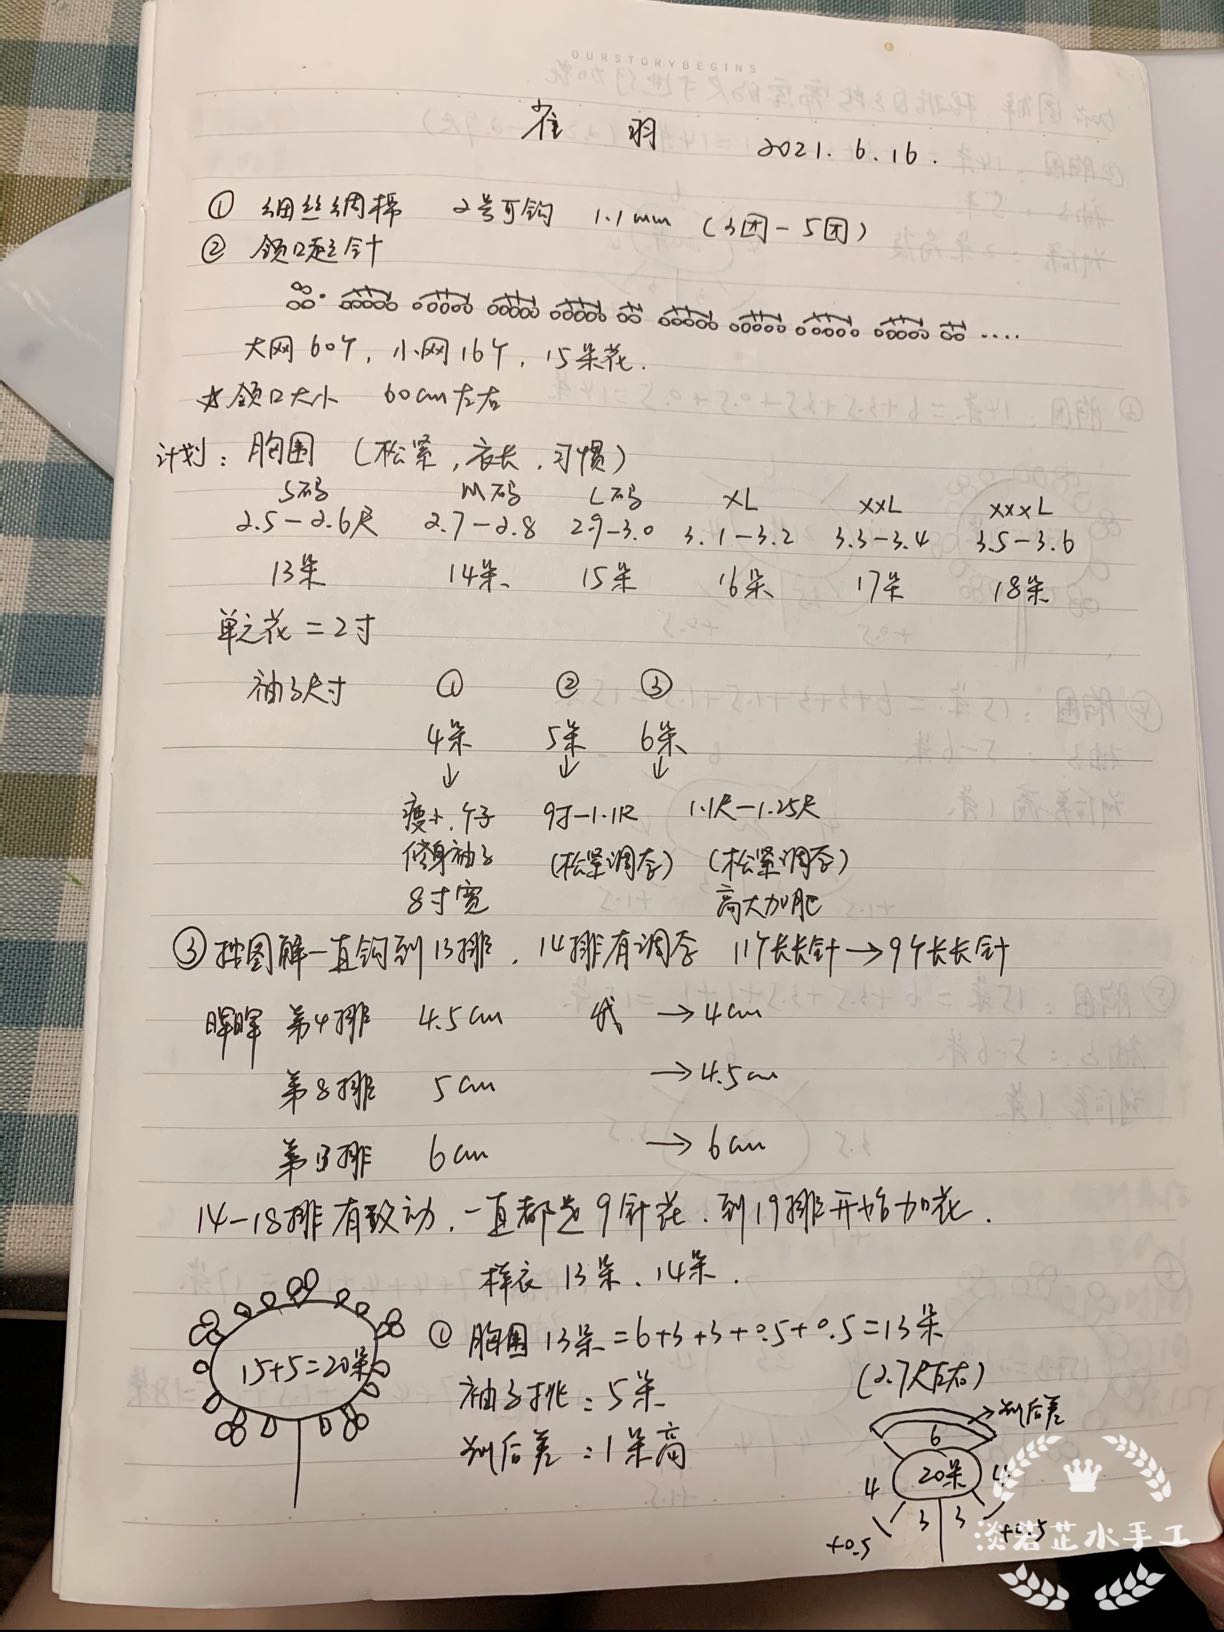 OURSTORYBEGINS
雀羽 2021.6.16.
① 细丝绸棉 2号可钩 1.1mm (3团-5团)
② 领口起针
大网60个, 小网16个, 15朵花.
☆领口大小 60cm左右
计划: 胸围 (松紧, 衣长, 习惯)
S码 M码 L码 XL XXL XXXL
2.5-2.6尺 2.7-2.8 2.9-3.0 3.1-3.2 3.3-3.4 3.5-3.6
13朵 14朵 15朵 16朵 17朵 18朵
单元花=2寸
袖子尺寸 ① ② ③
4朵 5朵 6朵
↓ ↓ ↓
瘦小个子 9寸-1.1尺 1.1尺-1.25尺
修身袖子 (松紧调存) (松紧调存)
8寸宽 高大加肥
③ 按图解一直钩到13排, 14排有调存 11个长长针→9个长长针
晖晖 第4排 4.5cm 我 →4cm
第8排 5cm →4.5cm
第13排 6cm →6cm
14-18排有改动, 一直都是9针花, 到19排开始加花.
样衣 13朵, 14朵.
15+5=20朵
① 胸围13朵=6+3+3+0.5+0.5=13朵
(2.7尺左右)
袖子挑: 5朵
别后差: 1朵高
→别后差
6
20朵
4 4
3 3
+0.5 +0.5
淡若芷水手工